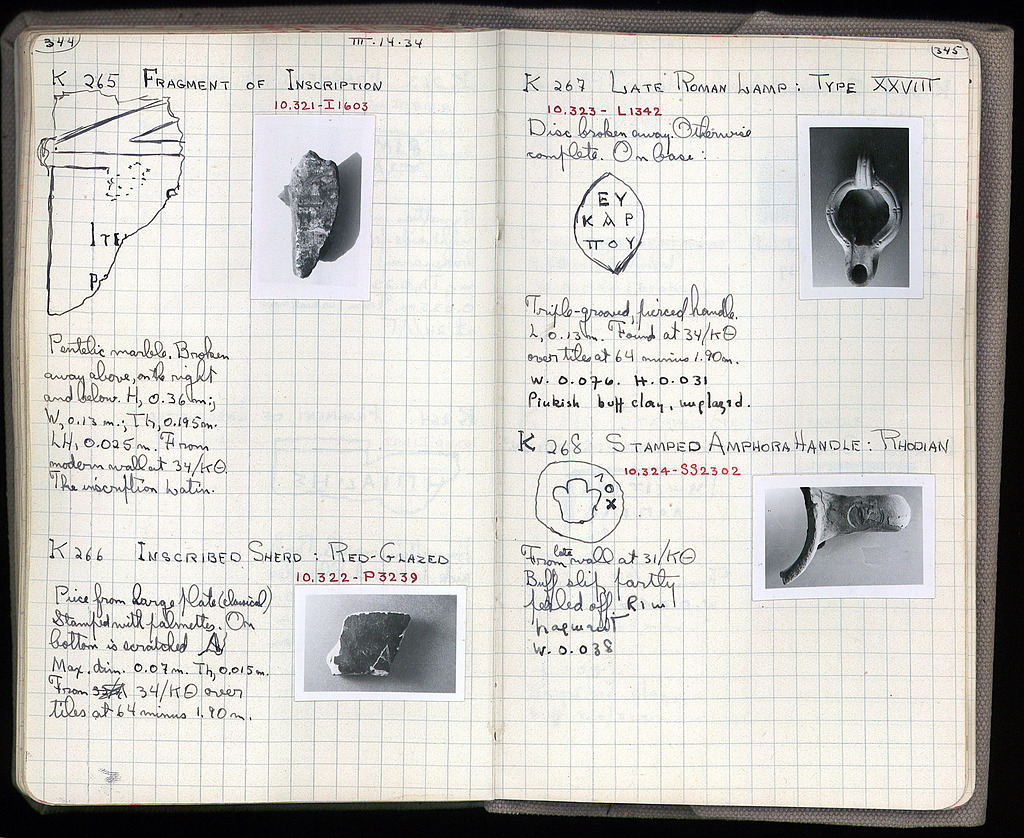 344
III.14.34
K 265 FRAGMENT OF INSCRIPTION
10.321-I1603
ITE
P
Pentelic marble. Broken
away above, on the right
and below. H, 0.36 m.;
W, 0.13 m.; Th, 0.195m.
LH, 0.025 m. From
modern wall at 34/ΚΘ.
The inscription Latin.
K 266 INSCRIBED SHERD : RED-GLAZED
10.322-P3239
Piece from large plate (classical)
Stamped with palmettes. On
bottom is scratched
Max. dim. 0.07 m. Th, 0.015m.
From 34/ΚΘ over
tiles at 64 minus 1.90 m.
345
K 267 LATE ROMAN LAMP : TYPE XXVIII
10.323 - L1342
Disc broken away. Otherwise
complete. On base :
ΕΥ
ΚΑΡ
ΠΟΥ
Triple-grooved, pierced handle.
L, 0.13 m. Found at 34/ΚΘ
over tiles at 64 minus 1.90m.
W. 0.076. H. 0.031
Pinkish buff clay, unglazed.
K 268 STAMPED AMPHORA HANDLE : RHODIAN
10.324-SS2302
From late wall at 31/ΚΘ
Buff slip partly
peeled off. Rim
fragment
W. 0.038